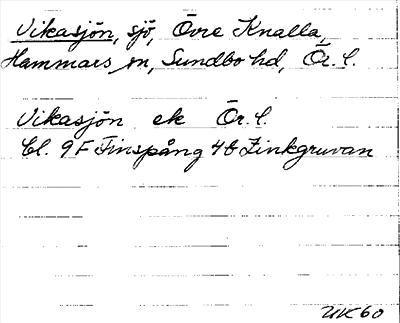 Vikasjön, sjö, Övre Knalla,
Hammars sn, Sundbo hd, Ör. l.
Vikasjön ek Ör. l.
Bl. 9F Finspång 4b Zinkgruvan
UK 60